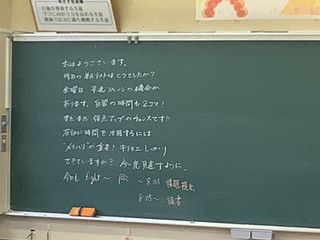 おはようございます。
昨日の単元テストはどうでしたか?
金曜日 早速リベンジの機会が
あります。自習の時間も2コマ!
まだまだ 得点アップのチャンスです!!
有効に時間を活用するには
"メリハリ"が重要! キリカエしっかり
できていますか? 今一度見直すように。
今日も fight～
～8:25 課題提出
8:25～ 読書